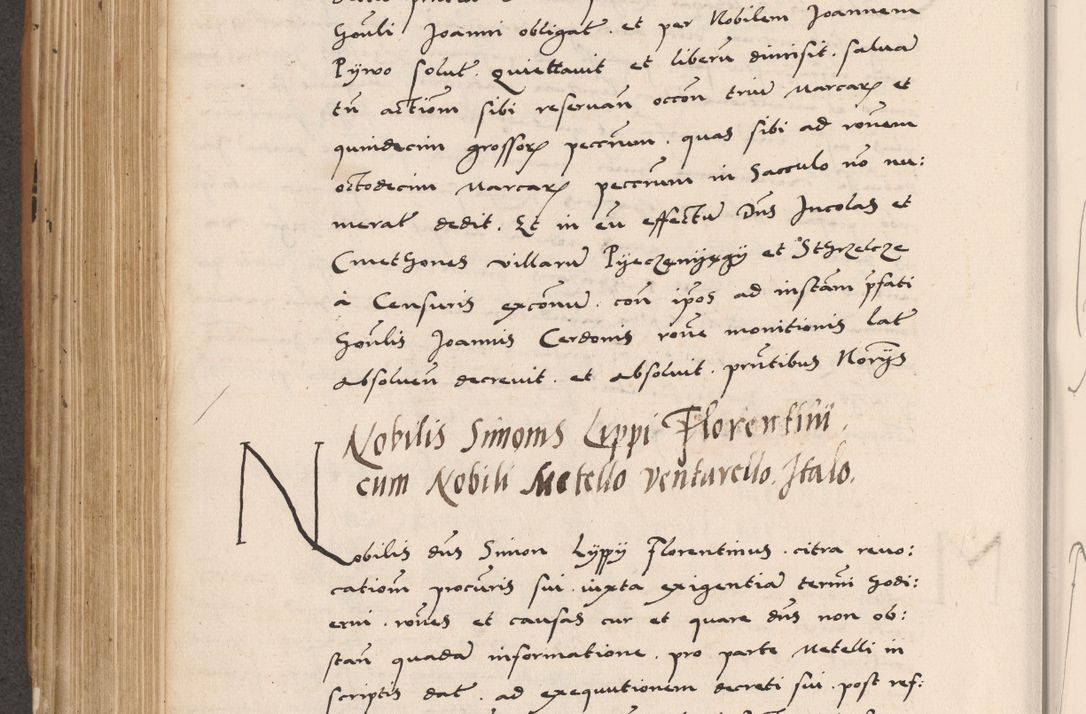 honli Joanni obligat . et per Nobilem Joannem
Pywo solut . Quiettavit et liberu dimisit . salva
tn actiom sibi reservan occon triu Marcar et
quindecim grossor peccnum . quas sibi ad ronem
octodecim Marcar peccnum in Sacculo no nu:
merat dedit . Et in eu effectu Dns Incolas et
Cmethones villaru Pyeczenyxgy et Sthrzelcze
à Censuris exconu . con ipos ad instam pfati
honlis Joannis Cerdonis rone monitionis lat
absolven decrevit . et absolvit . prntibus Norys
Nobilis Simonis Lippi Florentini .
cum Nobili Metello Ventarello . Italo .
Nobilis dns Simon Lyppy Florentinus . citra revo:
cationi procuris sui . iuxta exigentia termi hodi:
erni . rones et causas cur et quare dns non ob:
stan quada informatione . pro parte Metelli in
scriptis dat . ad exequutionem decreti sui . post ref: